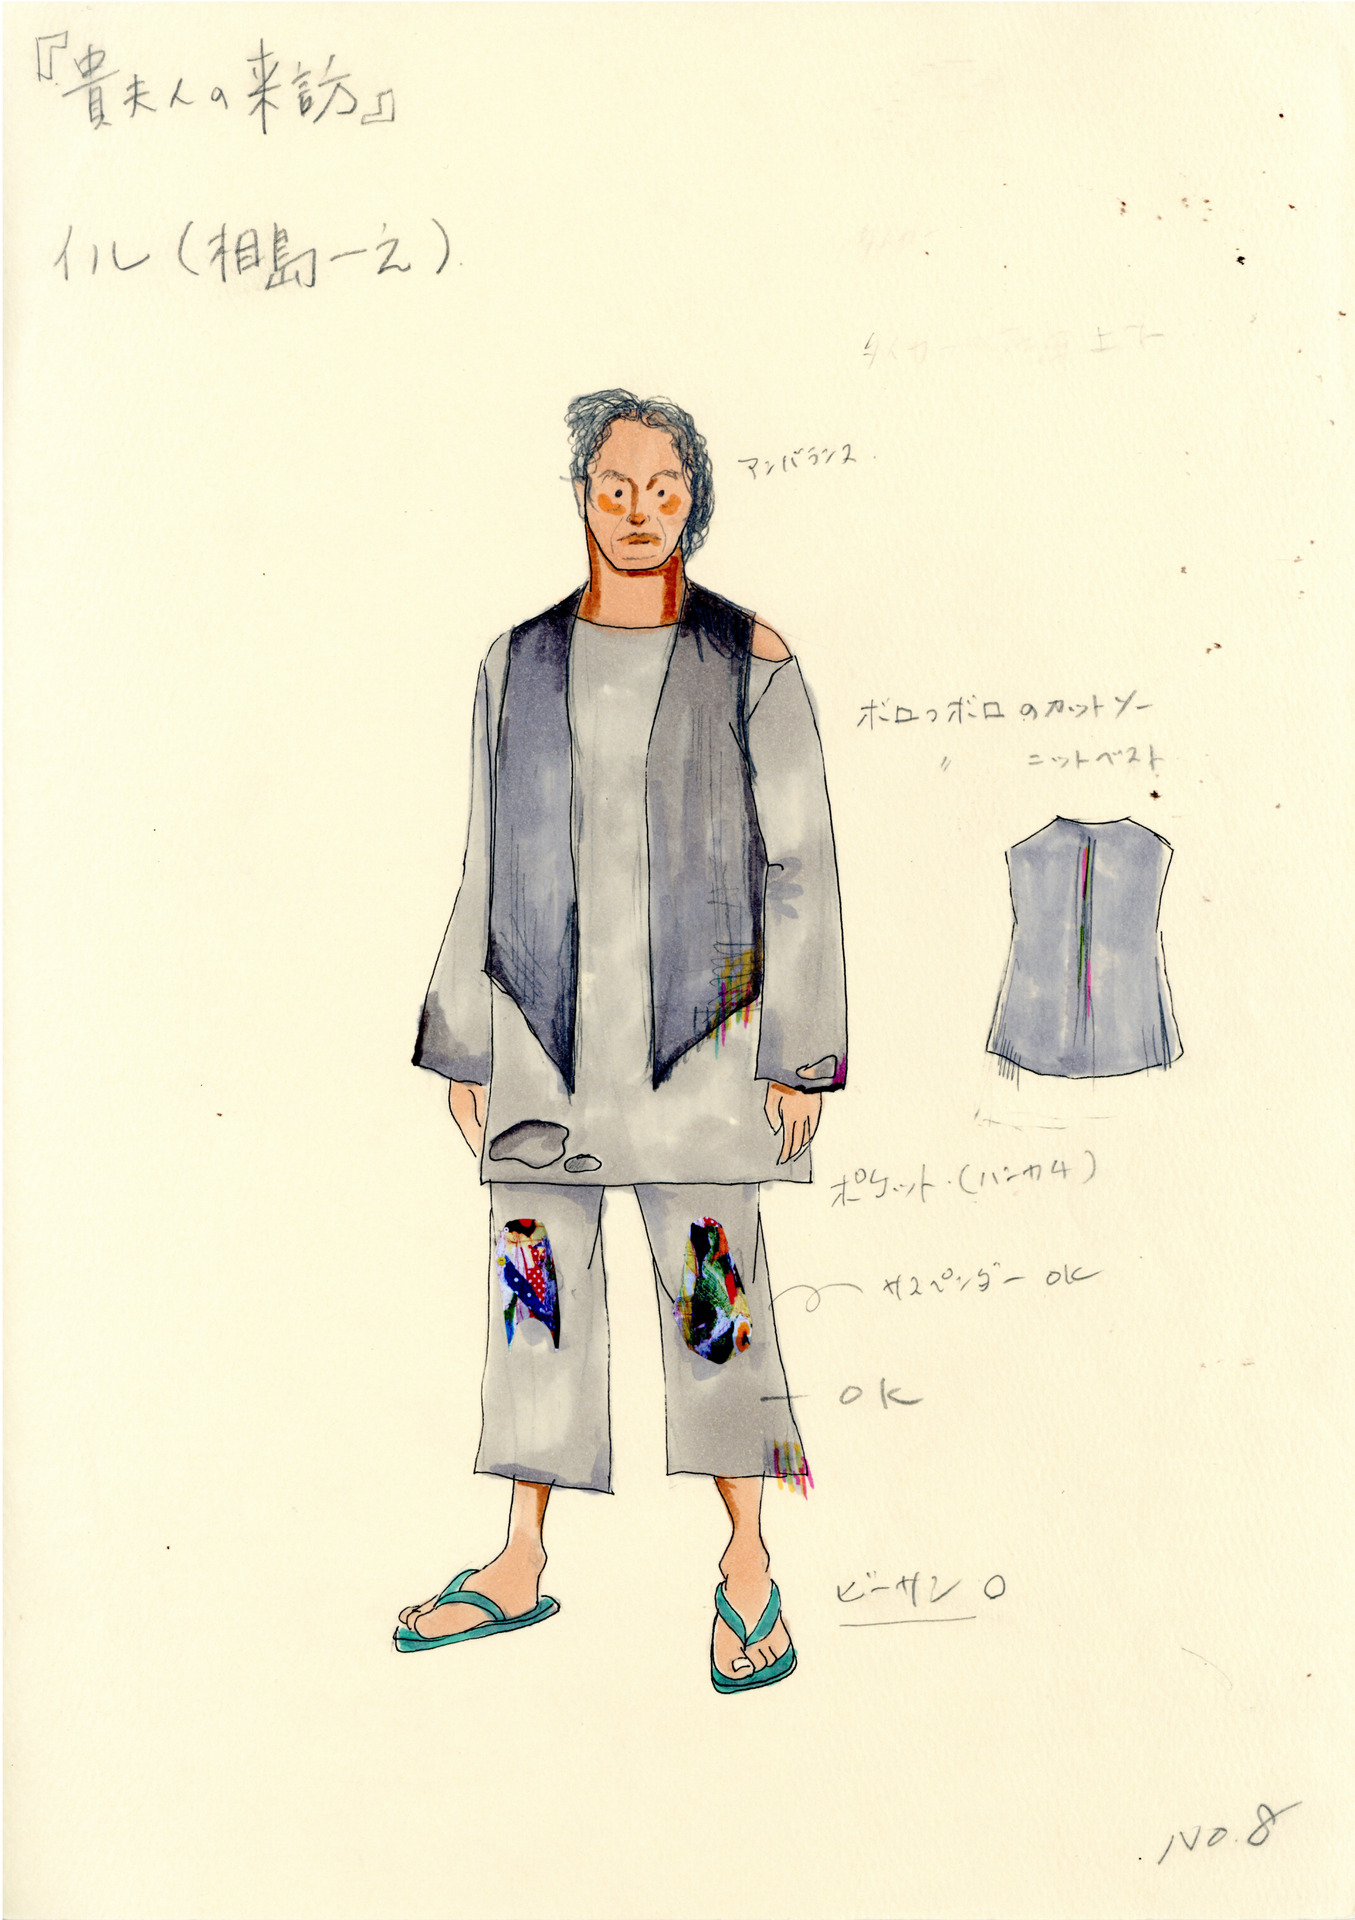 『貴夫人の来訪』
イル(相島一之)
アンバランス.
ボロっボロのカットソー
〃 ニットベスト
ポケット.(ハンカチ)
サスペンダー OK
OK
ビーサン ○
NO.8